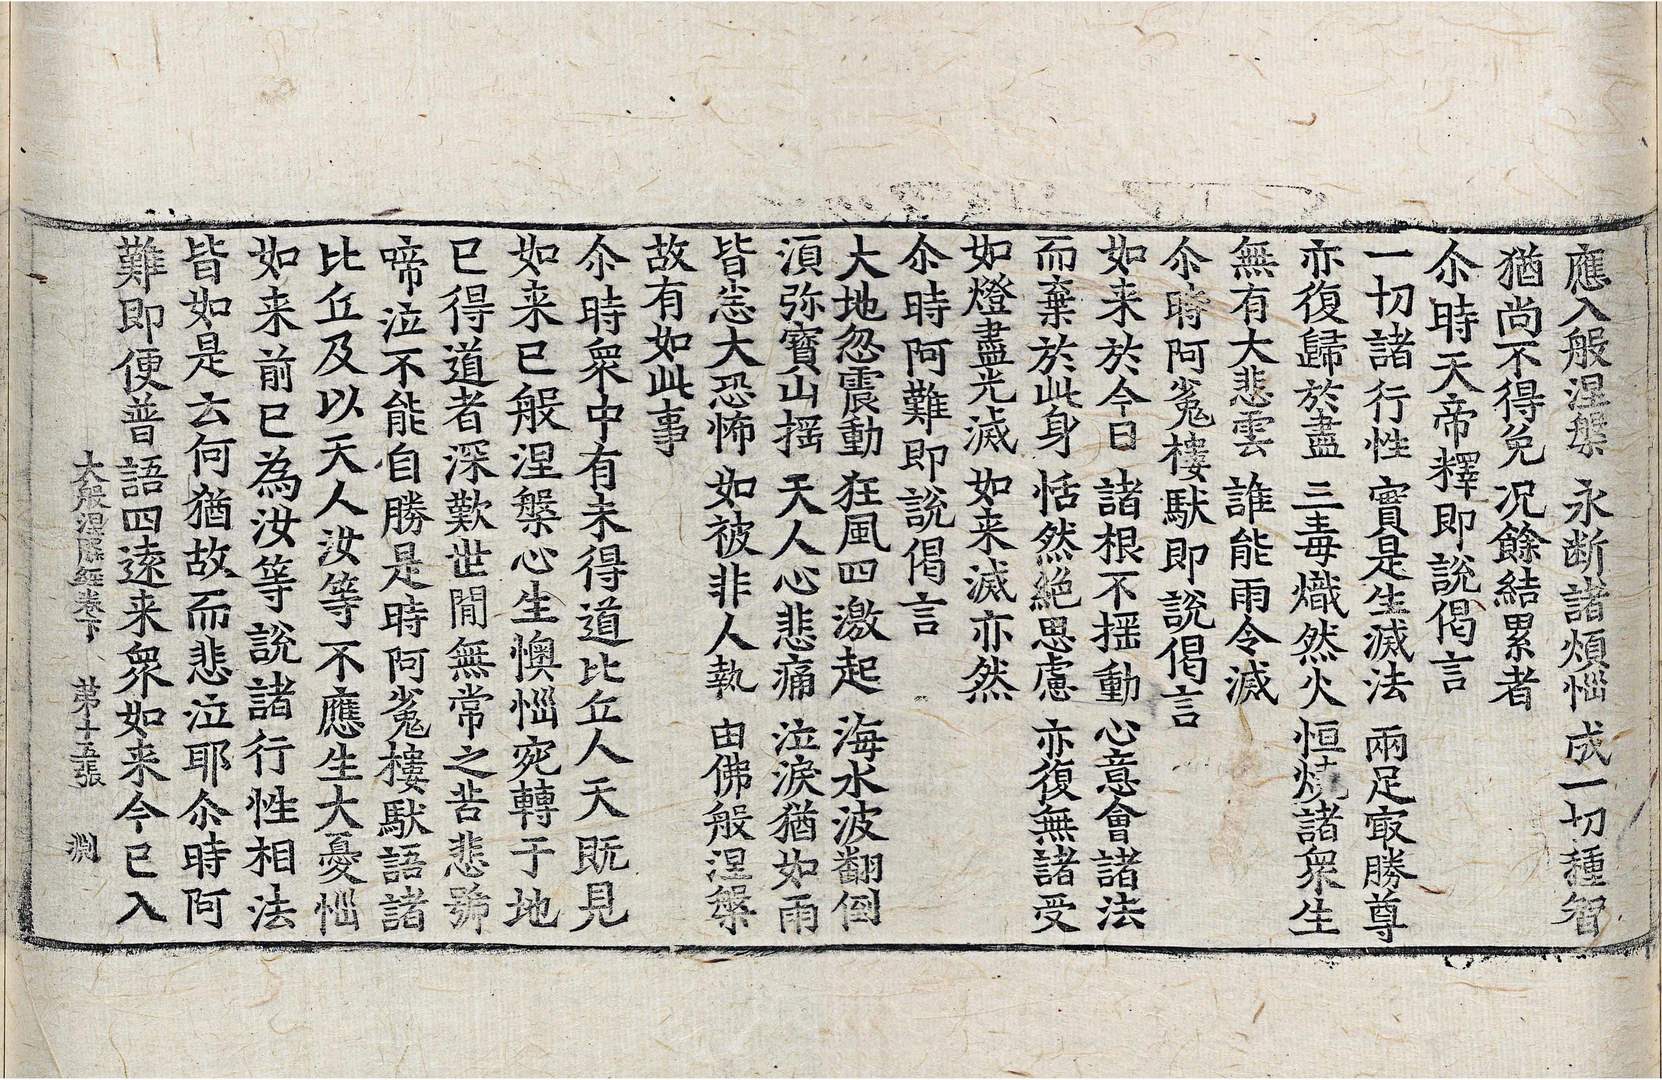 應入般涅槃 永断諸煩惱 成一切種智
猶尚不得免 况餘結累者
尒時天帝釋即說偈言
一切諸行性 實是生滅法 兩足㝡勝尊
亦復歸於盡 三毒熾然火 恒燒諸衆生
無有大悲雲 誰能雨令滅
尒時阿㝹樓馱即說偈言
如来於今日 諸根不摇動 心意會諸法
而棄於此身 恬然絕思慮 亦復無諸受
如燈盡光滅 如来滅亦然
尒時阿難即說偈言
大地忽震動 狂風四激起 海水波翻倒
湏弥寶山摇 天人心悲痛 泣淚猶如雨
皆㤀大恐怖 如被非人執 由佛般涅槃
故有如此事
尒時衆中有未得道比丘人天既見
如来已般涅槃心生懊惱宛轉于地
已得道者深歎世閒無常之苦悲號
啼泣不能自勝是時阿㝹樓馱語諸
比丘及以天人汝等不應生大憂惱
如来前已為汝等說諸行性相法
皆如是云何猶故而悲泣耶尒時阿
難即便普語四逺来衆如来今已入
大般涅槃經卷下 苐十五張 渕